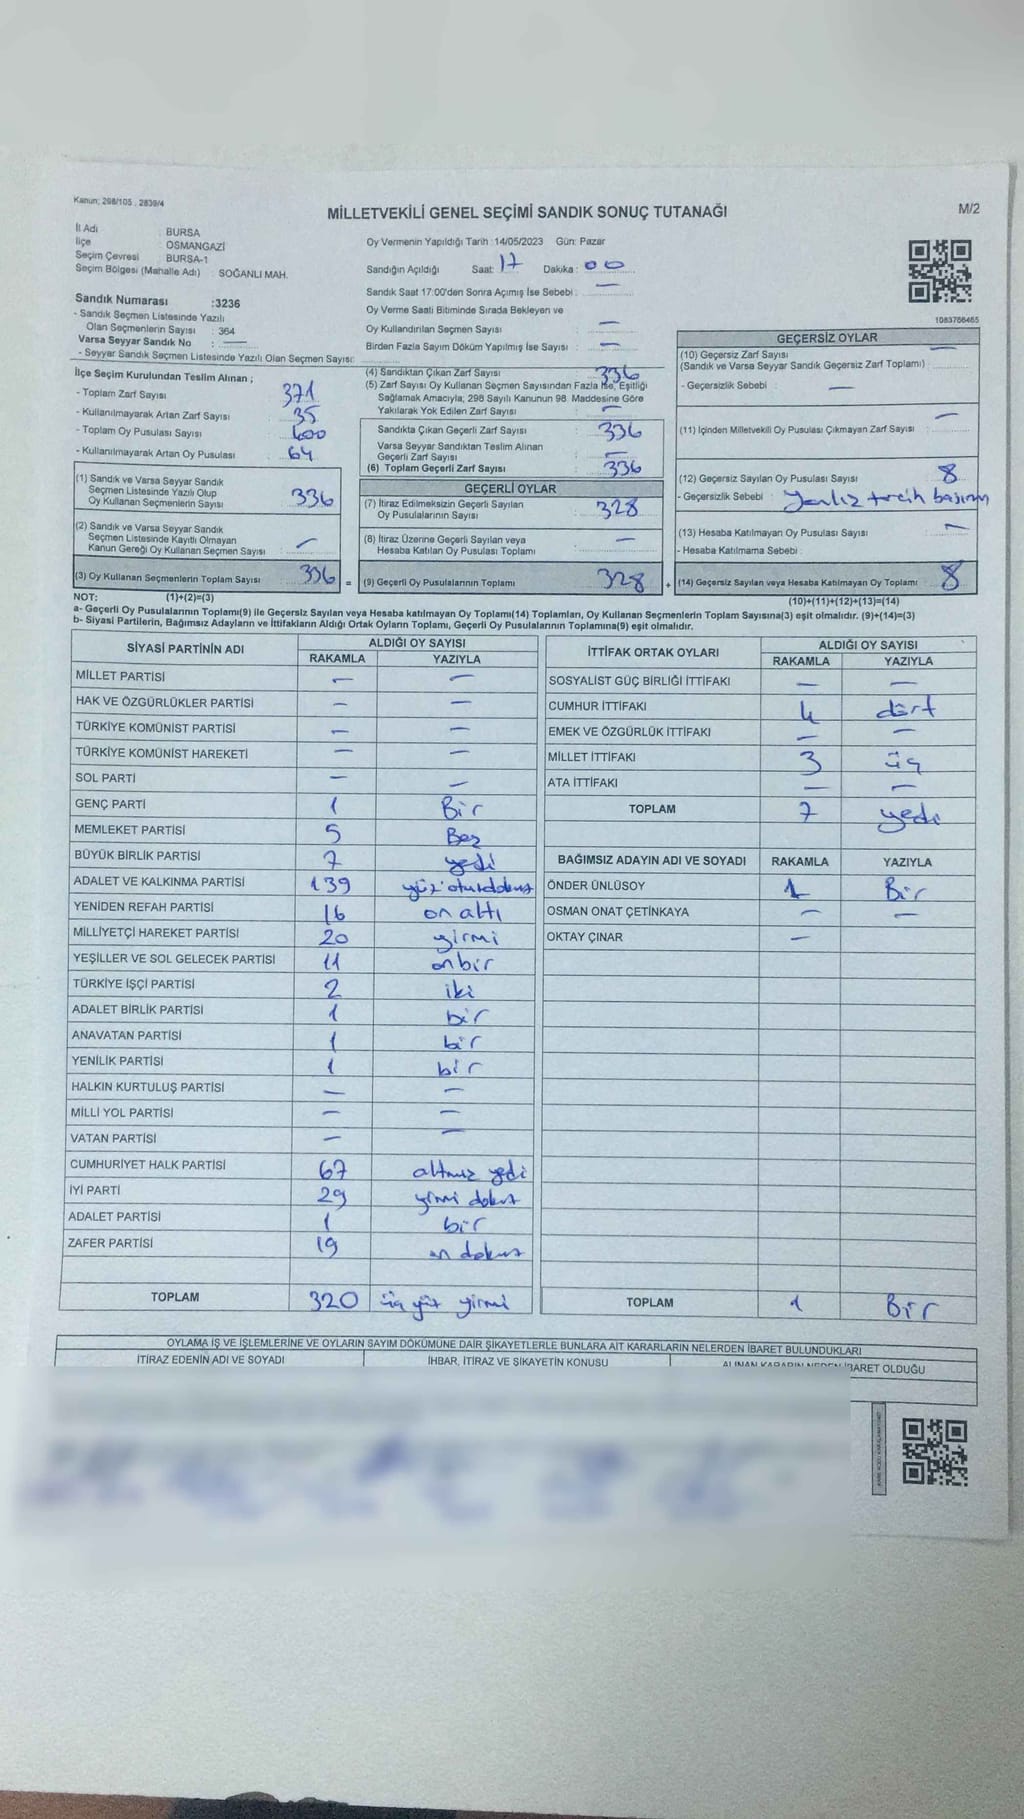 Kanun; 298/105 , 2839/4
MİLLETVEKİLİ GENEL SEÇİMİ SANDIK SONUÇ TUTANAĞI
M/2
İl Adı : BURSA
İlçe : OSMANGAZİ
Seçim Çevresi : BURSA-1
Seçim Bölgesi (Mahalle Adı) : SOĞANLI MAH.
Oy Vermenin Yapıldığı Tarih :14/05/2023 Gün: Pazar
Sandığın Açıldığı Saat: 17 Dakika : 00
Sandık Saat 17:00'den Sonra Açımış İse Sebebi : —
Oy Verme Saati Bitiminde Sırada Bekleyen ve
Oy Kullandırılan Seçmen Sayısı : —
Birden Fazla Sayım Döküm Yapılmış İse Sayısı : —
1083766465
Sandık Numarası :3236
- Sandık Seçmen Listesinde Yazılı
Olan Seçmenlerin Sayısı : 364
Varsa Seyyar Sandık No : —
- Seyyar Sandık Seçmen Listesinde Yazılı Olan Seçmen Sayısı:
İlçe Seçim Kurulundan Teslim Alınan ;
- Toplam Zarf Sayısı : 371
- Kullanılmayarak Artan Zarf Sayısı : 35
- Toplam Oy Pusulası Sayısı : 400
- Kullanılmayarak Artan Oy Pusulası : 64
(1) Sandık ve Varsa Seyyar Sandık
Seçmen Listesinde Yazılı Olup
Oy Kullanan Seçmenlerin Sayısı : 336
(2) Sandık ve Varsa Seyyar Sandık
Seçmen Listesinde Kayıtlı Olmayan
Kanun Gereği Oy Kullanan Seçmen Sayısı : —
(3) Oy Kullanan Seçmenlerin Toplam Sayısı : 336 =
(4) Sandıktan Çıkan Zarf Sayısı : 336
(5) Zarf Sayısı Oy Kullanan Seçmen Sayısından Fazla İse, Eşitliği
Sağlamak Amacıyla; 298 Sayılı Kanunun 98. Maddesine Göre
Yakılarak Yok Edilen Zarf Sayısı : —
Sandıkta Çıkan Geçerli Zarf Sayısı : 336
Varsa Seyyar Sandıktan Teslim Alınan
Geçerli Zarf Sayısı : —
(6) Toplam Geçerli Zarf Sayısı : 336
GEÇERLİ OYLAR
(7) İtiraz Edilmeksizin Geçerli Sayılan
Oy Pusulalarının Sayısı : 328
(8) İtiraz Üzerine Geçerli Sayılan veya
Hesaba Katılan Oy Pusulası Toplamı : —
(9) Geçerli Oy Pusulalarının Toplamı 328 +
GEÇERSİZ OYLAR
(10) Geçersiz Zarf Sayısı : —
(Sandık ve Varsa Seyyar Sandık Geçersiz Zarf Toplamı)
- Geçersizlik Sebebi : —
(11) İçinden Milletvekili Oy Pusulası Çıkmayan Zarf Sayısı : —
(12) Geçersiz Sayılan Oy Pusulası Sayısı : 8
- Geçersizlik Sebebi : tercih
(13) Hesaba Katılmayan Oy Pusulası Sayısı : —
- Hesaba Katılmama Sebebi :
(14) Geçersiz Sayılan veya Hesaba Katılmayan Oy Toplamı : 8
NOT: (1)+(2)=(3)
(10)+(11)+(12)+(13)=(14)
a- Geçerli Oy Pusulalarının Toplamı(9) ile Geçersiz Sayılan veya Hesaba katılmayan Oy Toplamı(14) Toplamları, Oy Kullanan Seçmenlerin Toplam Sayısına(3) eşit olmalıdır. (9)+(14)=(3)
b- Siyasi Partilerin, Bağımsız Adayların ve İttifakların Aldığı Ortak Oyların Toplamı, Geçerli Oy Pusulalarının Toplamına(9) eşit olmalıdır.
SİYASİ PARTİNİN ADI ALDIĞI OY SAYISI
RAKAMLA YAZIYLA
MİLLET PARTİSİ — —
HAK VE ÖZGÜRLÜKLER PARTİSİ — —
TÜRKİYE KOMÜNİST PARTİSİ — —
TÜRKİYE KOMÜNİST HAREKETİ — —
SOL PARTİ — —
GENÇ PARTİ 1 Bir
MEMLEKET PARTİSİ 5 Beş
BÜYÜK BİRLİK PARTİSİ 7 yedi
ADALET VE KALKINMA PARTİSİ 139 yüz otuzdokuz
YENİDEN REFAH PARTİSİ 16 on altı
MİLLİYETÇİ HAREKET PARTİSİ 20 yirmi
YEŞİLLER VE SOL GELECEK PARTİSİ 11 onbir
TÜRKİYE İŞÇİ PARTİSİ 2 iki
ADALET BİRLİK PARTİSİ 1 bir
ANAVATAN PARTİSİ 1 bir
YENİLİK PARTİSİ 1 bir
HALKIN KURTULUŞ PARTİSİ — —
MİLLİ YOL PARTİSİ — —
VATAN PARTİSİ — —
CUMHURİYET HALK PARTİSİ 67 altmış yedi
İYİ PARTİ 29 yirmi dokuz
ADALET PARTİSİ 1 bir
ZAFER PARTİSİ 19 on dokuz
TOPLAM 320 üç yüz yirmi
İTTİFAK ORTAK OYLARI ALDIĞI OY SAYISI
RAKAMLA YAZIYLA
SOSYALİST GÜÇ BİRLİĞİ İTTİFAKI — —
CUMHUR İTTİFAKI 4 dört
EMEK VE ÖZGÜRLÜK İTTİFAKI — —
MİLLET İTTİFAKI 3 üç
ATA İTTİFAKI — —
TOPLAM 7 yedi
BAĞIMSIZ ADAYIN ADI VE SOYADI RAKAMLA YAZIYLA
ÖNDER ÜNLÜSOY 1 Bir
OSMAN ONAT ÇETİNKAYA — —
OKTAY ÇINAR —
TOPLAM 1 Bir
OYLAMA İŞ VE İŞLEMLERİNE VE OYLARIN SAYIM DÖKÜMÜNE DAİR ŞİKAYETLERLE BUNLARA AİT KARARLARIN NELERDEN İBARET BULUNDUKLARI
İTİRAZ EDENİN ADI VE SOYADI İHBAR, İTİRAZ VE ŞİKAYETİN KONUSU ALINAN KARARIN NEDEN İBARET OLDUĞU